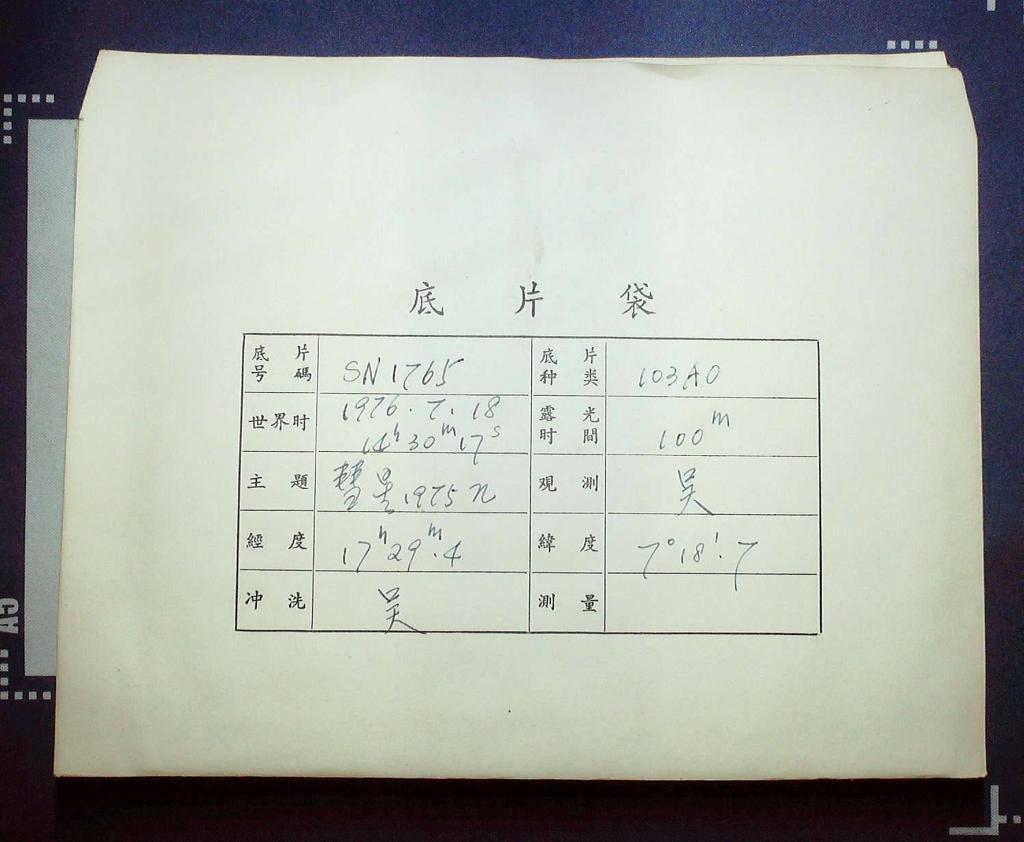 底片袋
底片号碼 SN1765 底片种类 103AO
世界时 1976.7.18 14ʰ30ᵐ17ˢ 露光时間 100ᵐ
主題 彗星1975n 观測 吴
經度 17ʰ29ᵐ.4 緯度 7°18'.7
冲洗 吴 測量
A5